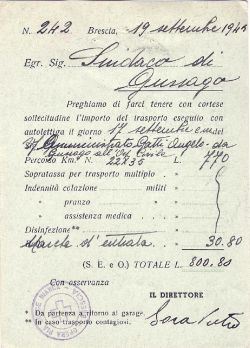 N. 242 Brescia, 19 settembre 194
Egr. Sig. Sindaco di
Gussago
Preghiamo di farci tenere con cortese
sollecitudine l'importo del trasporto eseguito con
autolettiga il giorno 17 settembre
Amministrato Gatti Angelo da
Gussago all'
Percorso Km.* N. 22 x 35 L. 770
Sopratassa per trasporto multiplo »
Indennità colazione militi »
» pranzo »
» assistenza medica »
Disinfezione**
Marche d'entrata 30.80
(S. E. e O.) TOTALE L. 800.80
Con osservanza
IL DIRETTORE
* Da partenza a ritorno al garage.
** In caso trasporto contagiosi.